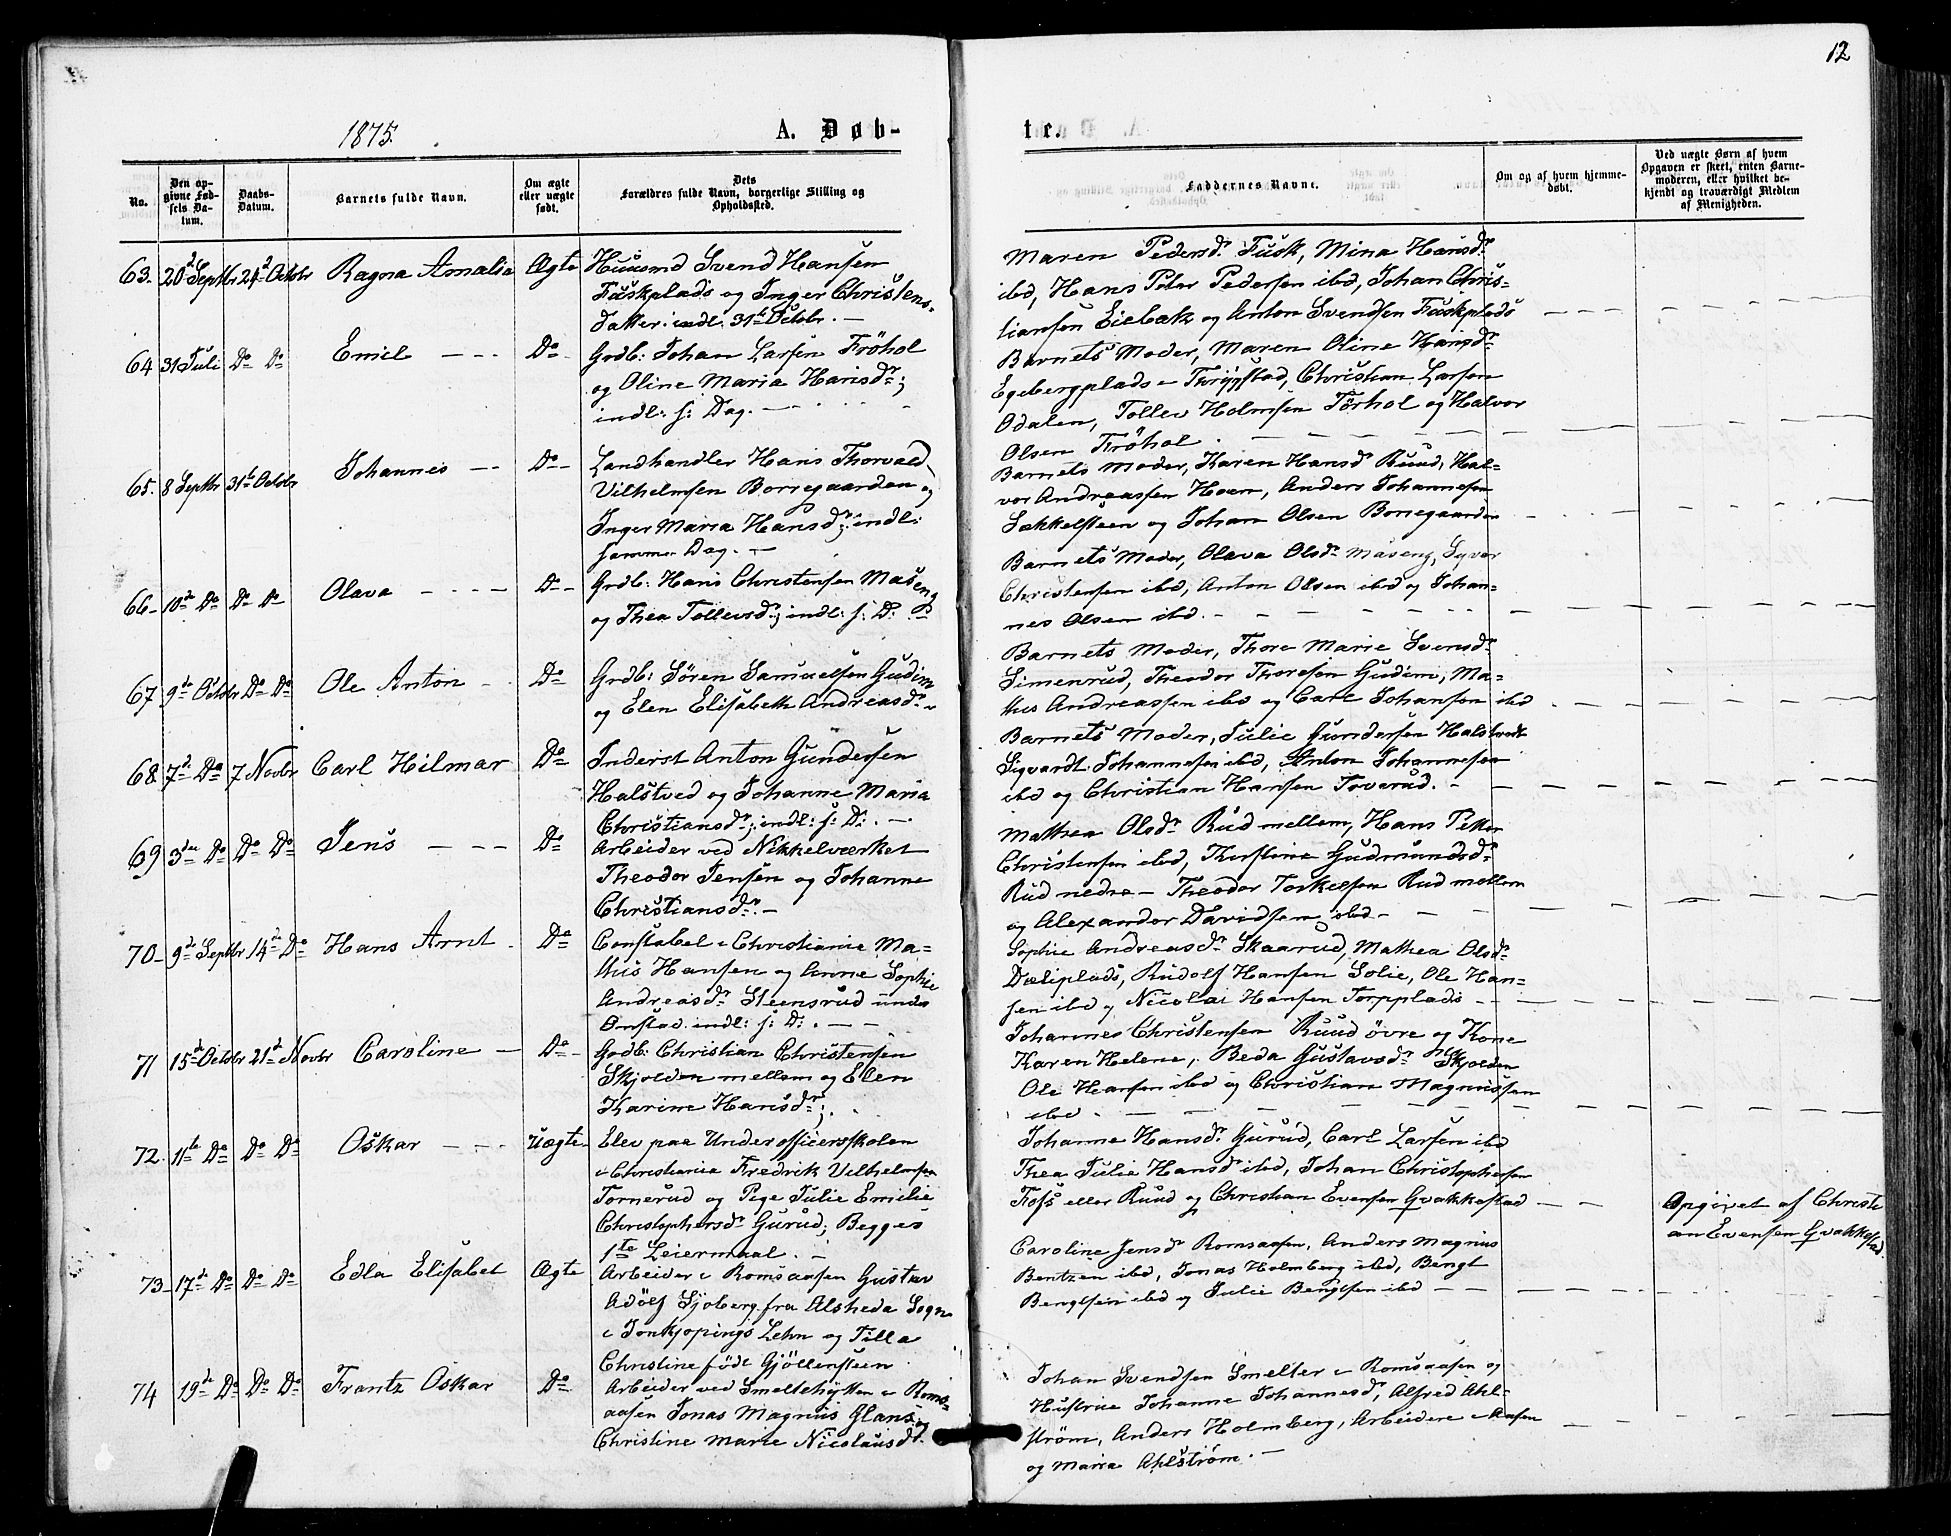 12
1875.
A. Døb-
te.
No.
Den op-
givne Fød-
sels Da-
tum.
Daabs-
Datum.
Barnets fulde Navn.
Om ægte
eller uægte
født.
Dets
Forældres fulde Navn, borgerlige Stilling og
Opholdssted.
Faddernes Navne.
Om og af hvem hjemme-
døbt.
Ved uægte Børn af hvem
Opgaven er skeet, enten Barne-
moderen, eller hvilket be-
kjendt og troværdigt Medlem
af Menigheden.
63. 20d Septbr 24d Octobr Ragna Amalia Ægte
Huusmd Svend Hansen
Fuskplads og Inger Christens-
datter: indl. 31te Octobr. —
Maren Pedersdr Fusk, Mina Hansdr
ibd, Hans Peter Pedersen ibd, Johan Chris-
tiansen Eiebak og Anton Svendsen Fuskplads
64 31 Juli Do Do Emil Do
Grdb: Johan Larsen Fröhol
og Oline Maria Hansdr;
indl: s: Dag. —
Barnets Moder, Maren Oline Hansdr
Egebergplads i Thrygstad, Christian Larsen
Odalen, Tollev Holmsen Törhol og Halvor
Olsen Fröhol
65. 8 Septbr 31te Octobr Johannes Do
Landhandler Hans Thorvald
Vilhelmsen Borregaarden og
Inger Maria Hansdr; indl:
samme Dag. —
Barnets Moder, Karen Hansdr Ruud, Hal-
vor Andreassen Hoen, Anders Johannesen
Sækkelsteen og Johan Olsen Borregaarden
66 10de Do Do Do Olava Do
Grdb: Hans Christensen Maseng
og Thea Tollevsdr; indl: s: D.
Barnets Moder, Olava Olsdr Maseng, Syver
Christensen ibd, Anton Olsen ibd og Johan-
nes Olsen ibd.
67 9de Octobr Do Do Ole Anton Do
Grdb: Sören Samuelsen Gudim
og Elen Elisabeth Andreasdr
Barnets Moder, Thore Marie Svensdr
Simenrud, Theodor Thoresen Gudim, Ma-
this Andreassen ibd og Carl Johansen ibd
68 7de Do 7 Novbr Carl Hilmar Do
Inderst Anton Gundersen
Halstved og Johanne Maria
Christiansdr; indl: s: D: . —
Barnets Moder, Julie Gundersen Halstvedt
Sigvardt Johannesen ibd, Anton Johannesen
ibd og Christian Hansen Toverud. —
69 3die Do Do Do Jens Do
Arbeider ved Nikkelværket
Theodor Jensen og Johanne
Christiansdr. —
Mathea Olsdr Rud mellem, Hans Petter
Christensen ibd, Thorstine Gudmundsdr
Rud nedre — Theodor Torkelsen Rud mellem
og Alexander Davidsen ibd.
70 9de Septbr 14de Do Hans Arnt Do
Constabel i Christiania Ma-
this Hansen og Anne Sophie
Andreasdr Steensrud under
Onstad. indl: s: D: . —
Sophie Andreasdr Skaarud, Mathea Olsdr
Dæliplads, Rudolf Hansen Solie, Ole Han-
sen ibd og Nicolai Hansen Torpplads
71 15de Octobr 21d Novbr Caroline Do
Grdb: Christian Christensen
Skjolden mellem og Elen
Karine Hansdr; .
Johannes Christensen Ruud övre og Kone
Karen Helene, Beda Gustavsdr Skjolden
Ole Hansen ibd og Christian Magnussen
ibd
72. 11te Do Do Do Oskar Uægte
Elev paa Underofficersskolen
i Christiania Fredrik Vilhelmsen
Tornerud og Pige Julie Emilie
Christophersdr Gurud; Begges
1te Leiermaal. —
Johanne Hansdr Gurud, Carl Larsen ibd
Thea Julie Hansdr ibd, Johan Christophersen
Foss eller Ruud og Christian Evensen Gvakkestad
Opgivet af Christi
an Evensen Gvakkestad
73 17de Do Do Do Edla Elisabet Ægte
Arbeider i Romsaasen Gustav
Adolf Sjoberg fra Alsheda Sogn
i Jonkjopings Lehn og Tilla
Christine födt Gjöllensteen
Caroline Jensdr Romsaasen, Anders Magnus
Bentzen ibd, Jonas Holmberg ibd, Bengt
Bengtsen ibd og Julie Bengtsen ibd
74 19de Do Do Do Frantz Oskar Do
Arbeider ved Smeltehytten i Roms-
aasen Jonas Magnus Glans og
Christine Marie Nicolausdr.
Johan Svendsen Smelter i Romsaasen og
Hustrue Johanne Johannesdr, Alfred Ahl-
ström, Anders Holmberg, Arbeidere i Aasen
og Maria Ahlström. —